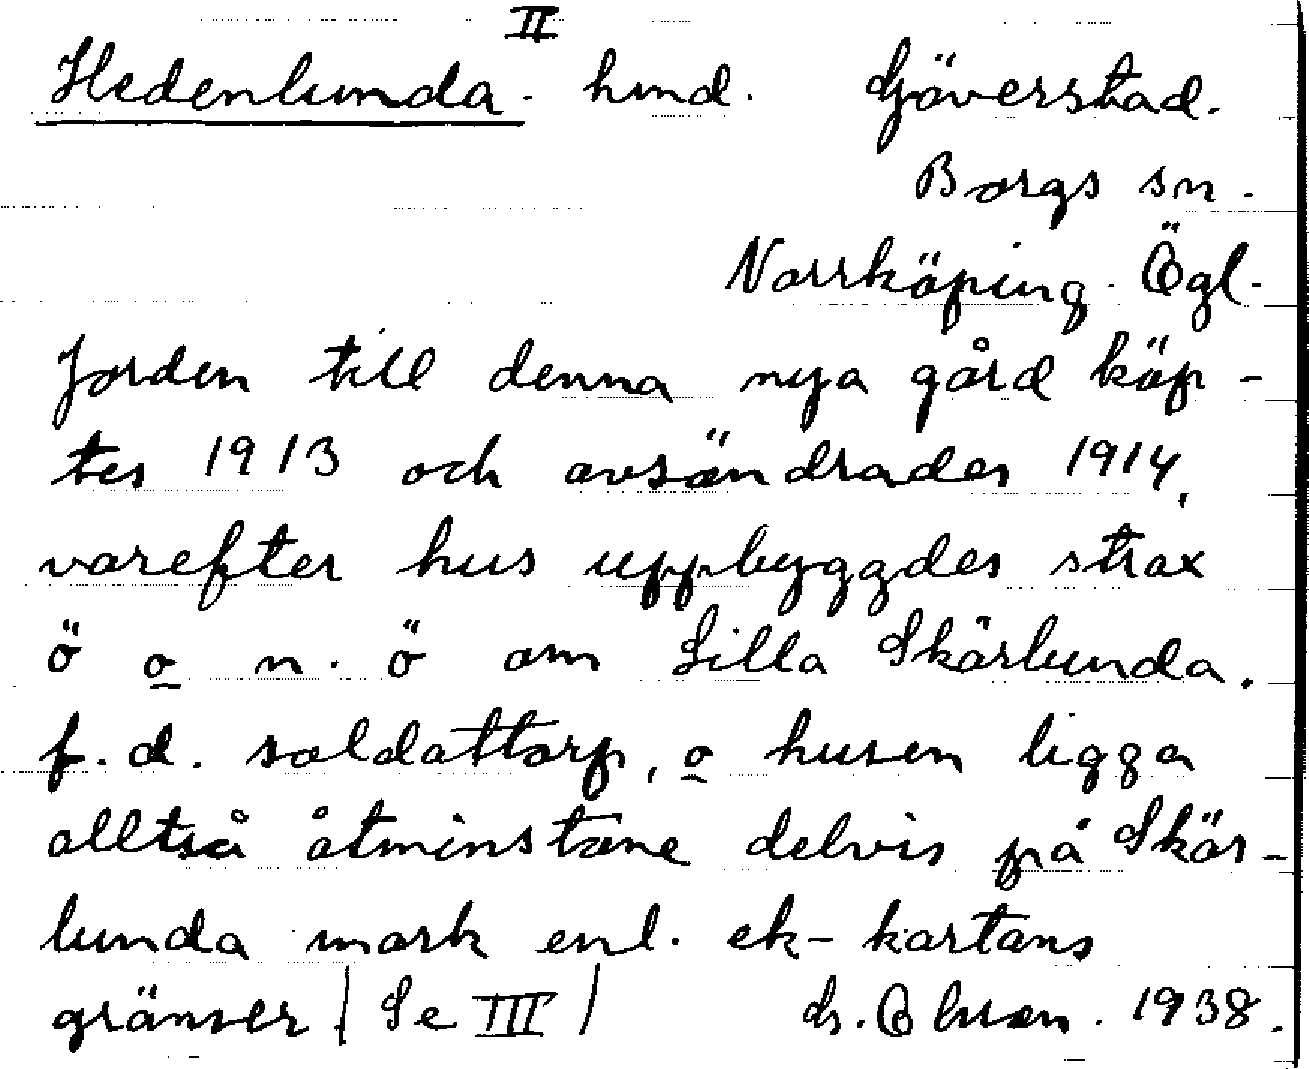 II
Hedenlunda. hmd. Gjöverstad.
Borgs sn.
Norrköping. Ögl.
Jorden till denna nya gård köp-
tes 1913 och avsöndrades 1914,
varefter hus uppbyggdes strax
ö o n. ö om Lilla Skärlunda.
f.d. soldattorp, o husen ligga
alltså åtminstone delvis på Skär-
lunda mark enl. ek-kartans
gränser / Se III / 1938.